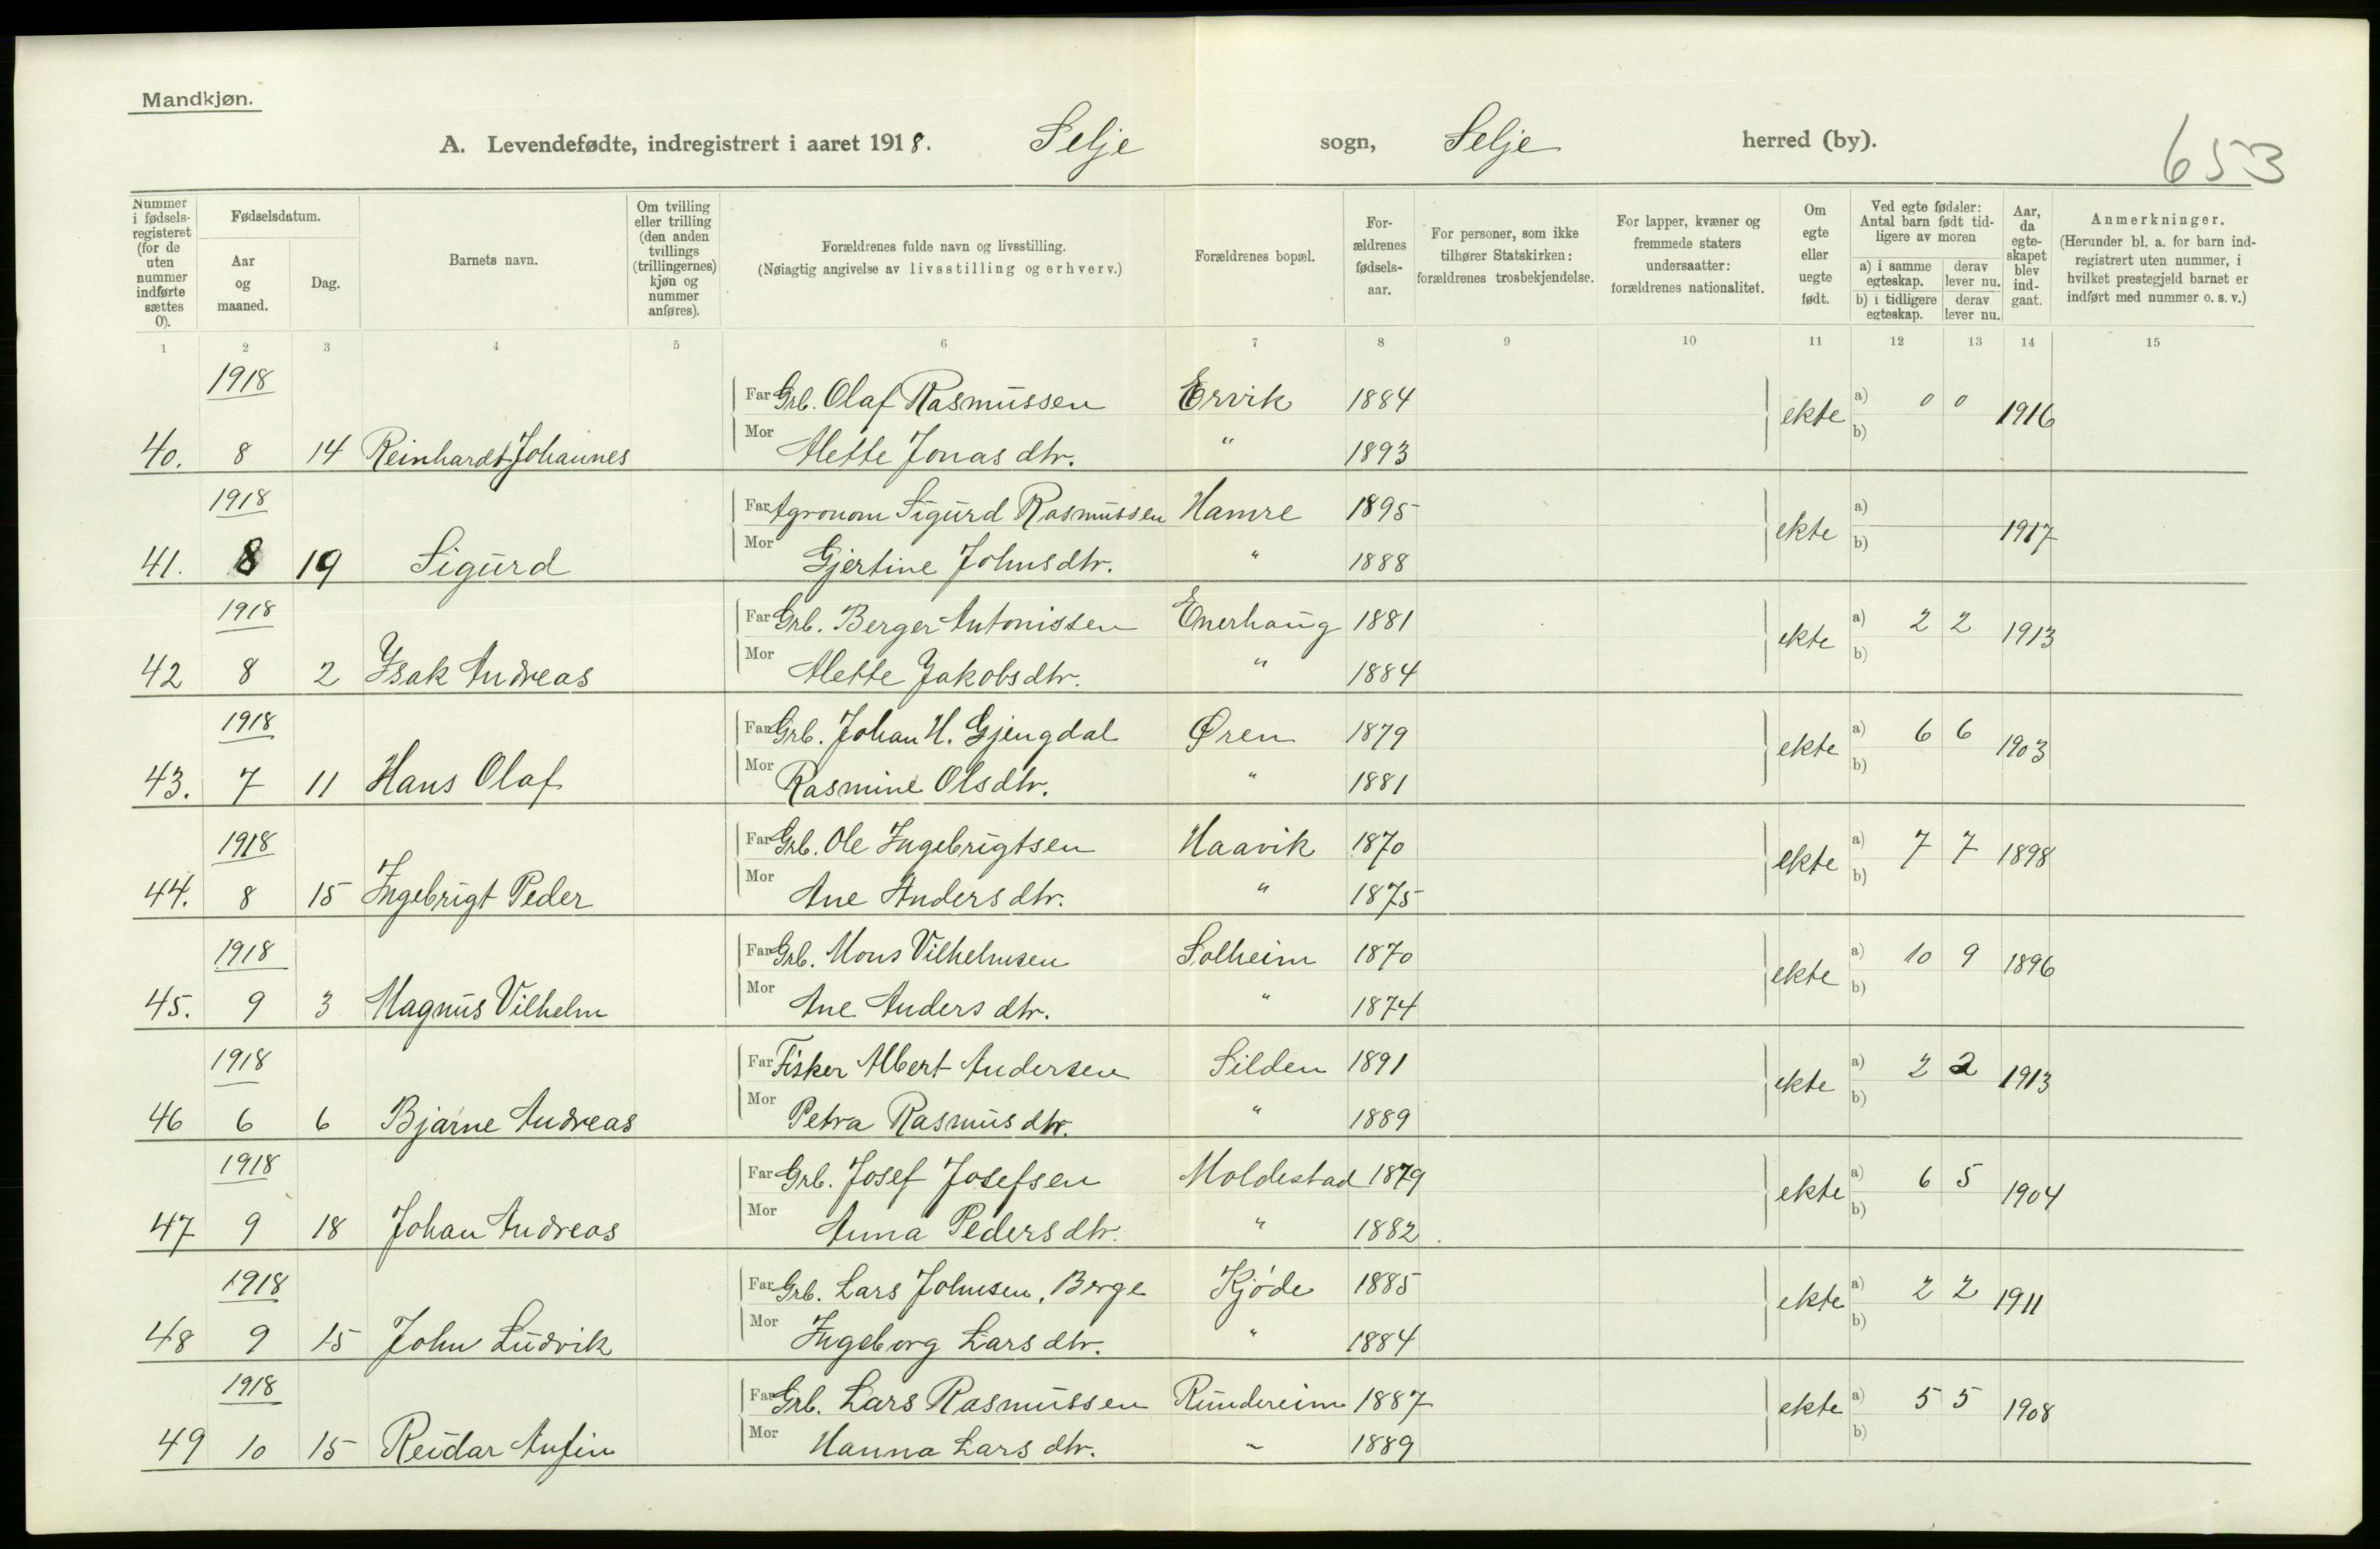 Mandkjøn.
A. Levendefødte, indregistrert i aaret 1918. Selje sogn, Selje herred (by).
653
Nummer i fødsels- registeret (for de uten nummer indførte sættes 0).
Fødselsdatum.
Aar og maaned.
Dag.
Barnets navn.
Om tvilling eller trilling (den anden tvillings (trillingernes) kjøn og nummer anføres).
Forældrenes fulde navn og livsstilling.
(Nøiagtig angivelse av livsstilling og erhverv.)
Forældrenes bopæl.
For- ældrenes fødsels- aar.
For personer, som ikke tilhører Statskirken: forældrenes trosbekjendelse.
For lapper, kvæner og fremmede staters undersaatter: forældrenes nationalitet.
Om egte eller uegte født.
Ved egte fødsler: Antal barn født tid- ligere av moren
a) i samme egteskap.
derav lever nu.
b) i tidligere egteskap.
derav lever nu.
Aar, da egte- skapet blev ind- gaat.
Anmerkninger.
(Herunder bl. a. for barn ind- registrert uten nummer, i hvilket prestegjeld barnet er indført med nummer o. s. v.)
1 2 3 4 5 6 7 8 9 10 11 12 13 14 15
1918
Far Grb. Olaf Rasmussen Ervik 1884 ekte a) 0 0 1916
b)
40. 8 14 Reinhardt Johannes Mor Alette Jonasdtr. " 1893
1918
Far Agronom Sigurd Rasmussen Hamre 1895 ekte a) 1917
b)
41. 8 19 Sigurd Mor Gjertine Johnsdtr. " 1888
1918
Far Grb. Berger Antonissen Enerhaug 1881 ekte a) 2 2 1913
b)
42 8 2 Isak Andreas Mor Alette Jakobsdtr. " 1884
1918
Far Grb. Johan H. Gjengdal Øren 1879 ekte a) 6 6 1903
b)
43. 7 11 Hans Olaf Mor Rasmine Olsdtr. " 1881
1918
Far Grb. Ole Ingebrigtsen Haavik 1870 ekte a) 7 7 1898
b)
44. 8 15 Ingebrigt Peder Mor Ane Andersdtr. " 1875
1918
Far Grb. Mons Vilhelmsen Solheim 1870 ekte a) 10 9 1896
b)
45. 9 3 Magnus Vilhelm Mor Ane Andersdtr. " 1874
1918
Far Fisker Albert Andersen Silden 1891 ekte a) 2 2 1913
b)
46 6 6 Bjarne Andreas Mor Petra Rasmusdtr. " 1889
1918
Far Grb. Josef Josefsen Moldestad 1879 ekte a) 6 5 1904
b)
47 9 18 Johan Andreas Mor Anna Pedersdtr. " 1882
1918
Far Grb. Lars Johnsen, Berge Kjøde 1885 ekte a) 2 2 1911
b)
48 9 15 John Ludvik Mor Ingeborg Larsdtr. " 1884
1918
Far Grb. Lars Rasmussen Rundereim 1887 ekte a) 5 5 1908
b)
49 10 15 Reidar Anfin Mor Hanna Larsdtr. " 1889